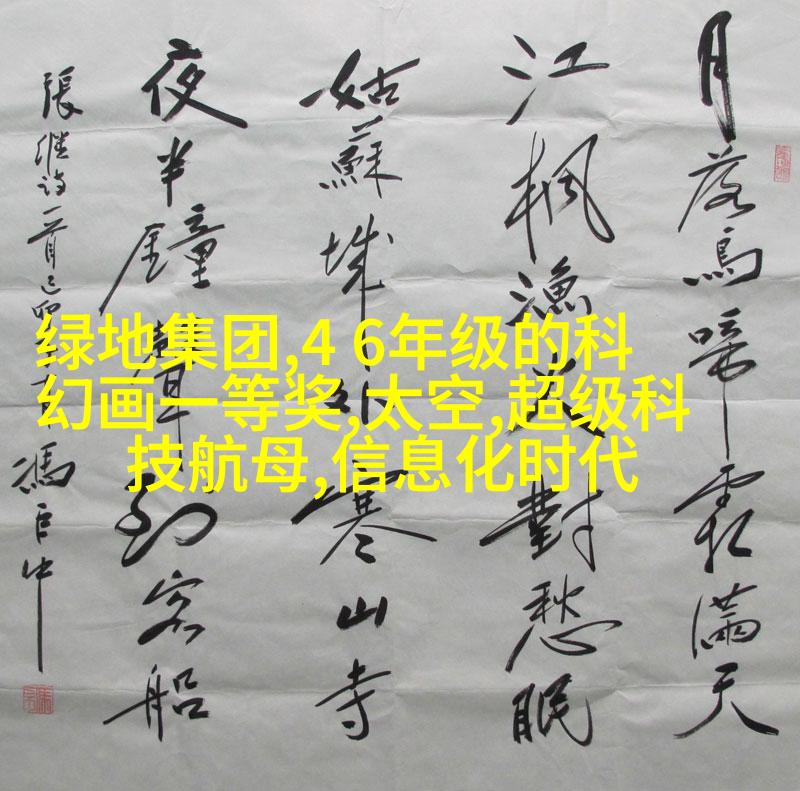 绿地集团,4 6年级的科
幻画一等奖,太空,超级科
技航母,信息化时代
月落烏啼霜滿天
江楓漁火對愁眠
姑蘇城外寒山寺
夜半鐘聲到客船
張继詩一首己卯 馮